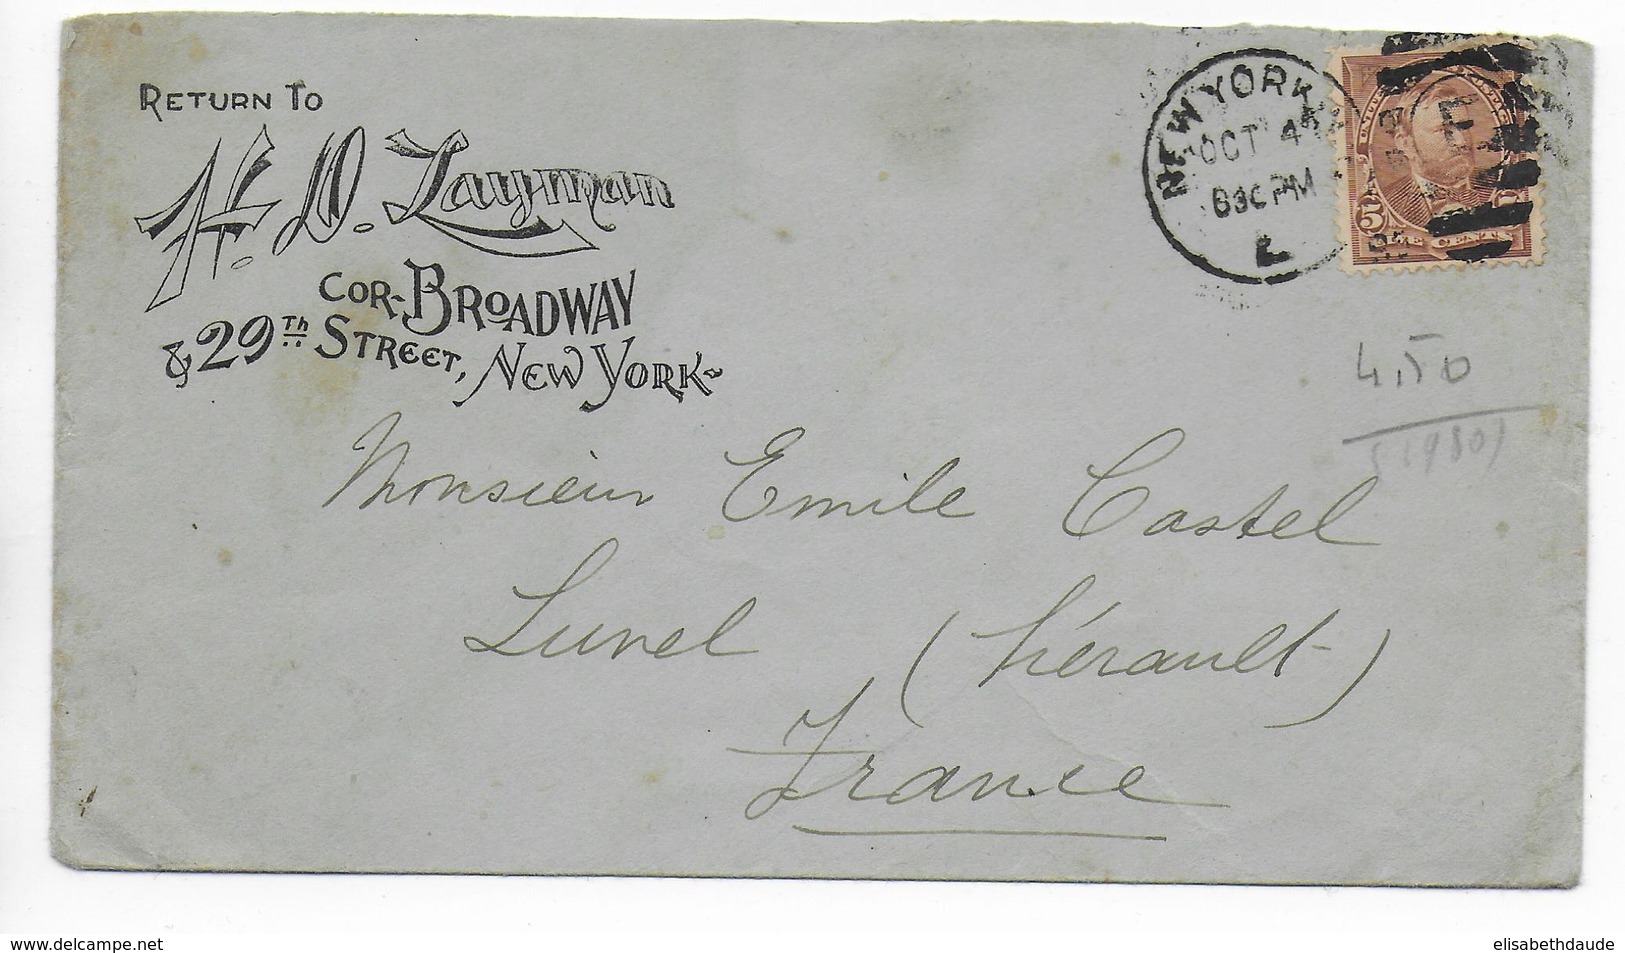 RETURN TO
H. D. Layman
COR. BROADWAY
& 29TH STREET, NEW YORK
NEW YORK
OCT 4
630 PM
FIVE CENTS
4,50
(1980)
Monsieur Emile Castel
Lunel (Hérault)
France
www.delcampe.net
elisabethdaude